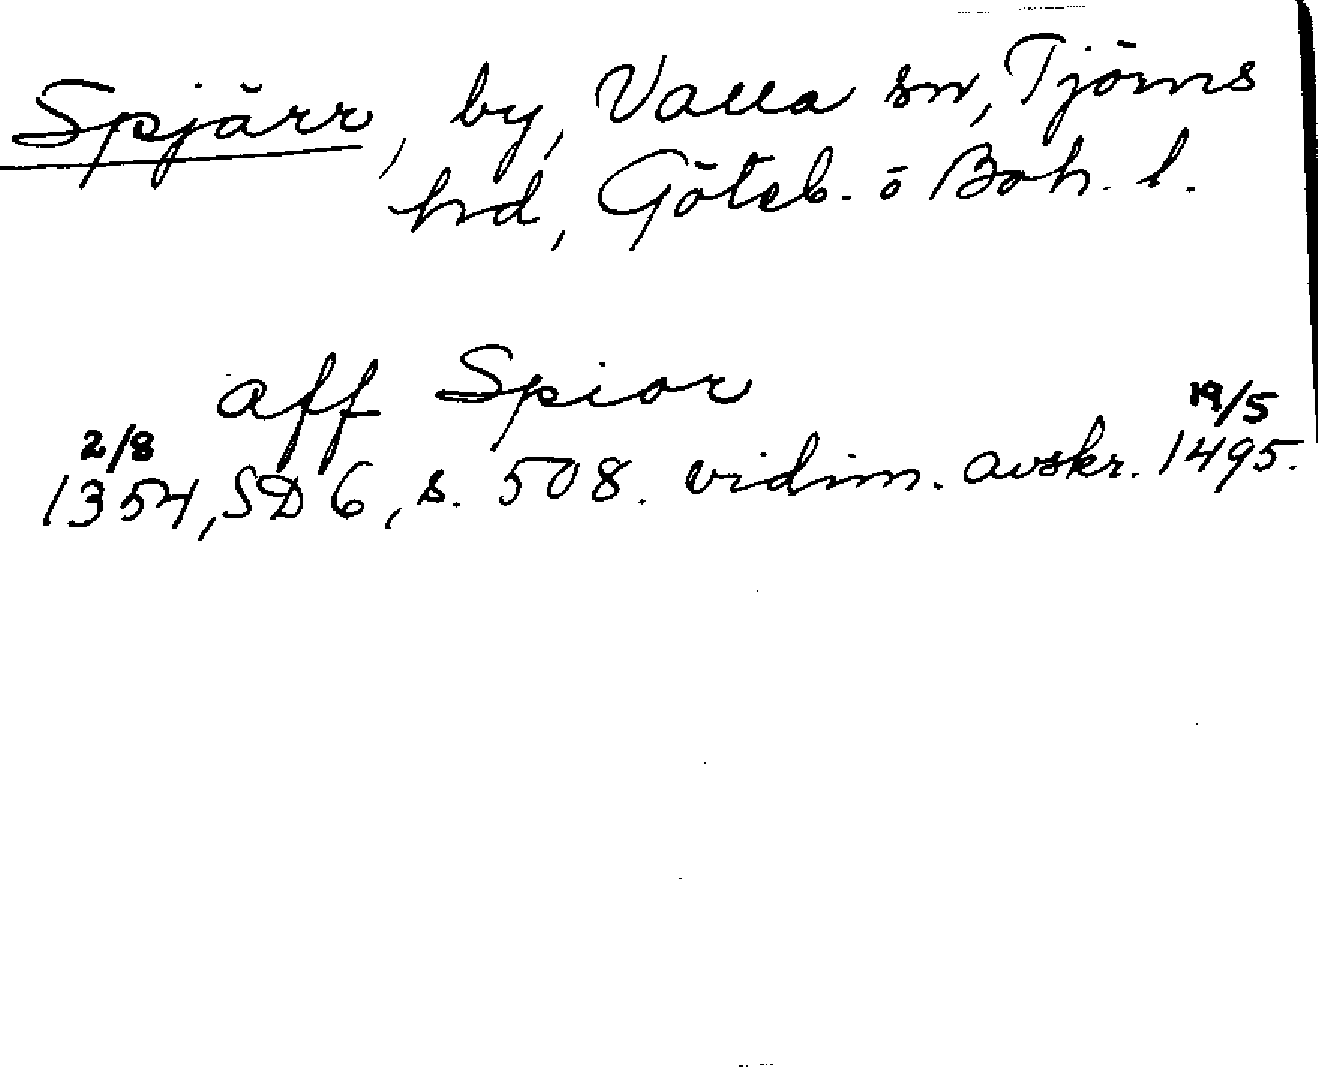 Spjärr, by, Valla sn, Tjörns
hd, Göteb. o Boh. l.
aff Spior
2/8 19/5
1354, SD 6, s. 508. vidim. avskr. 1495.